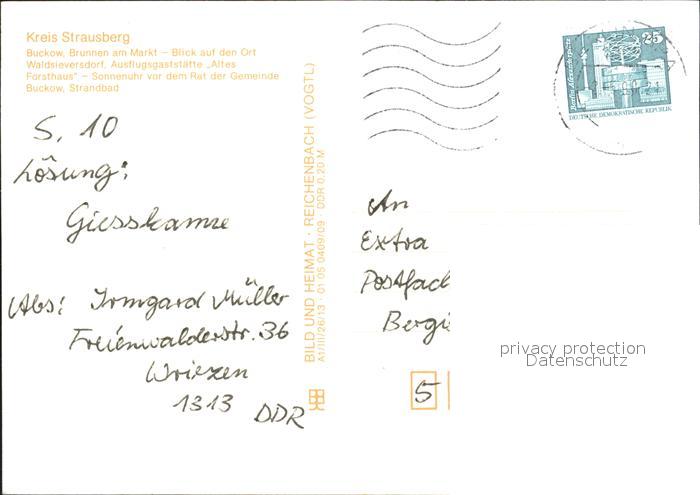 Kreis Strausberg
Buckow, Brunnen am Markt – Blick auf den Ort
Waldsieversdorf, Ausflugsgaststätte „Altes
Forsthaus" – Sonnenuhr vor dem Rat der Gemeinde
Buckow, Strandbad
S. 10
Lösung:
Giesskanne
Abs: Irmgard Müller
Freienwalderstr. 36
Wriezen
1313 DDR
BILD UND HEIMAT · REICHENBACH (VOGTL)
A1/III/26/13 01 05 0409/09 DDR 0,20 M
25
DEUTSCHE DEMOKRATISCHE REPUBLIK
An
Extra
Postfach
Bergi
5
privacy protection
Datenschutz